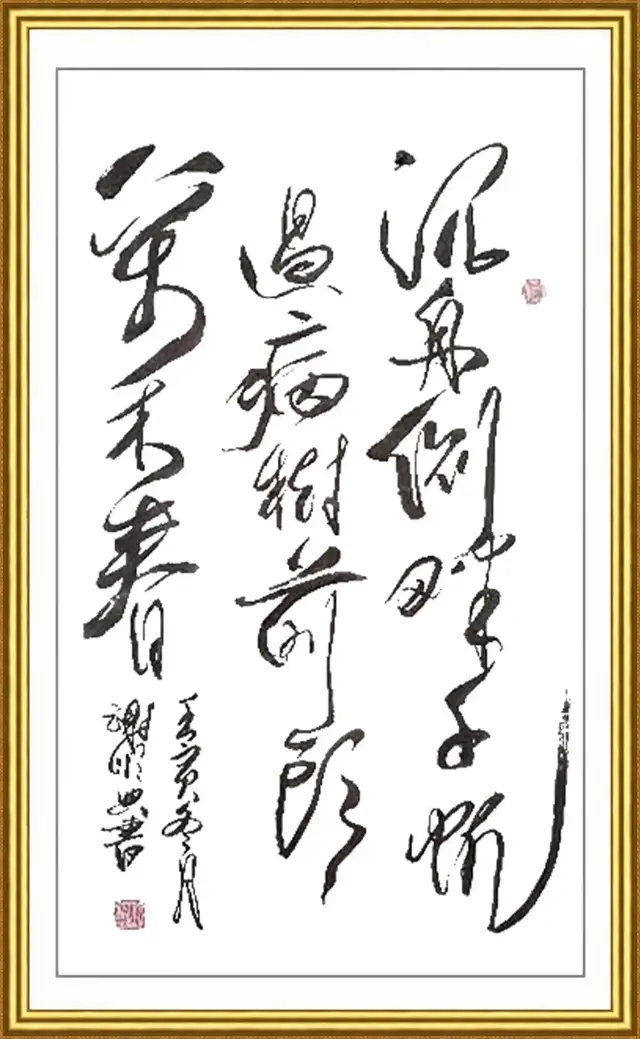 沉舟側畔千帆
過病樹前頭
萬木春
壬寅冬月
謝書